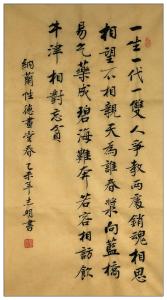 一生一代一雙人爭教兩處銷魂相思
相望不相親天為誰春漿向藍橋
易乞藥成碧海難奔若容相訪飲
牛津相對忘貧
納蘭性德畫堂春乙未年志明書